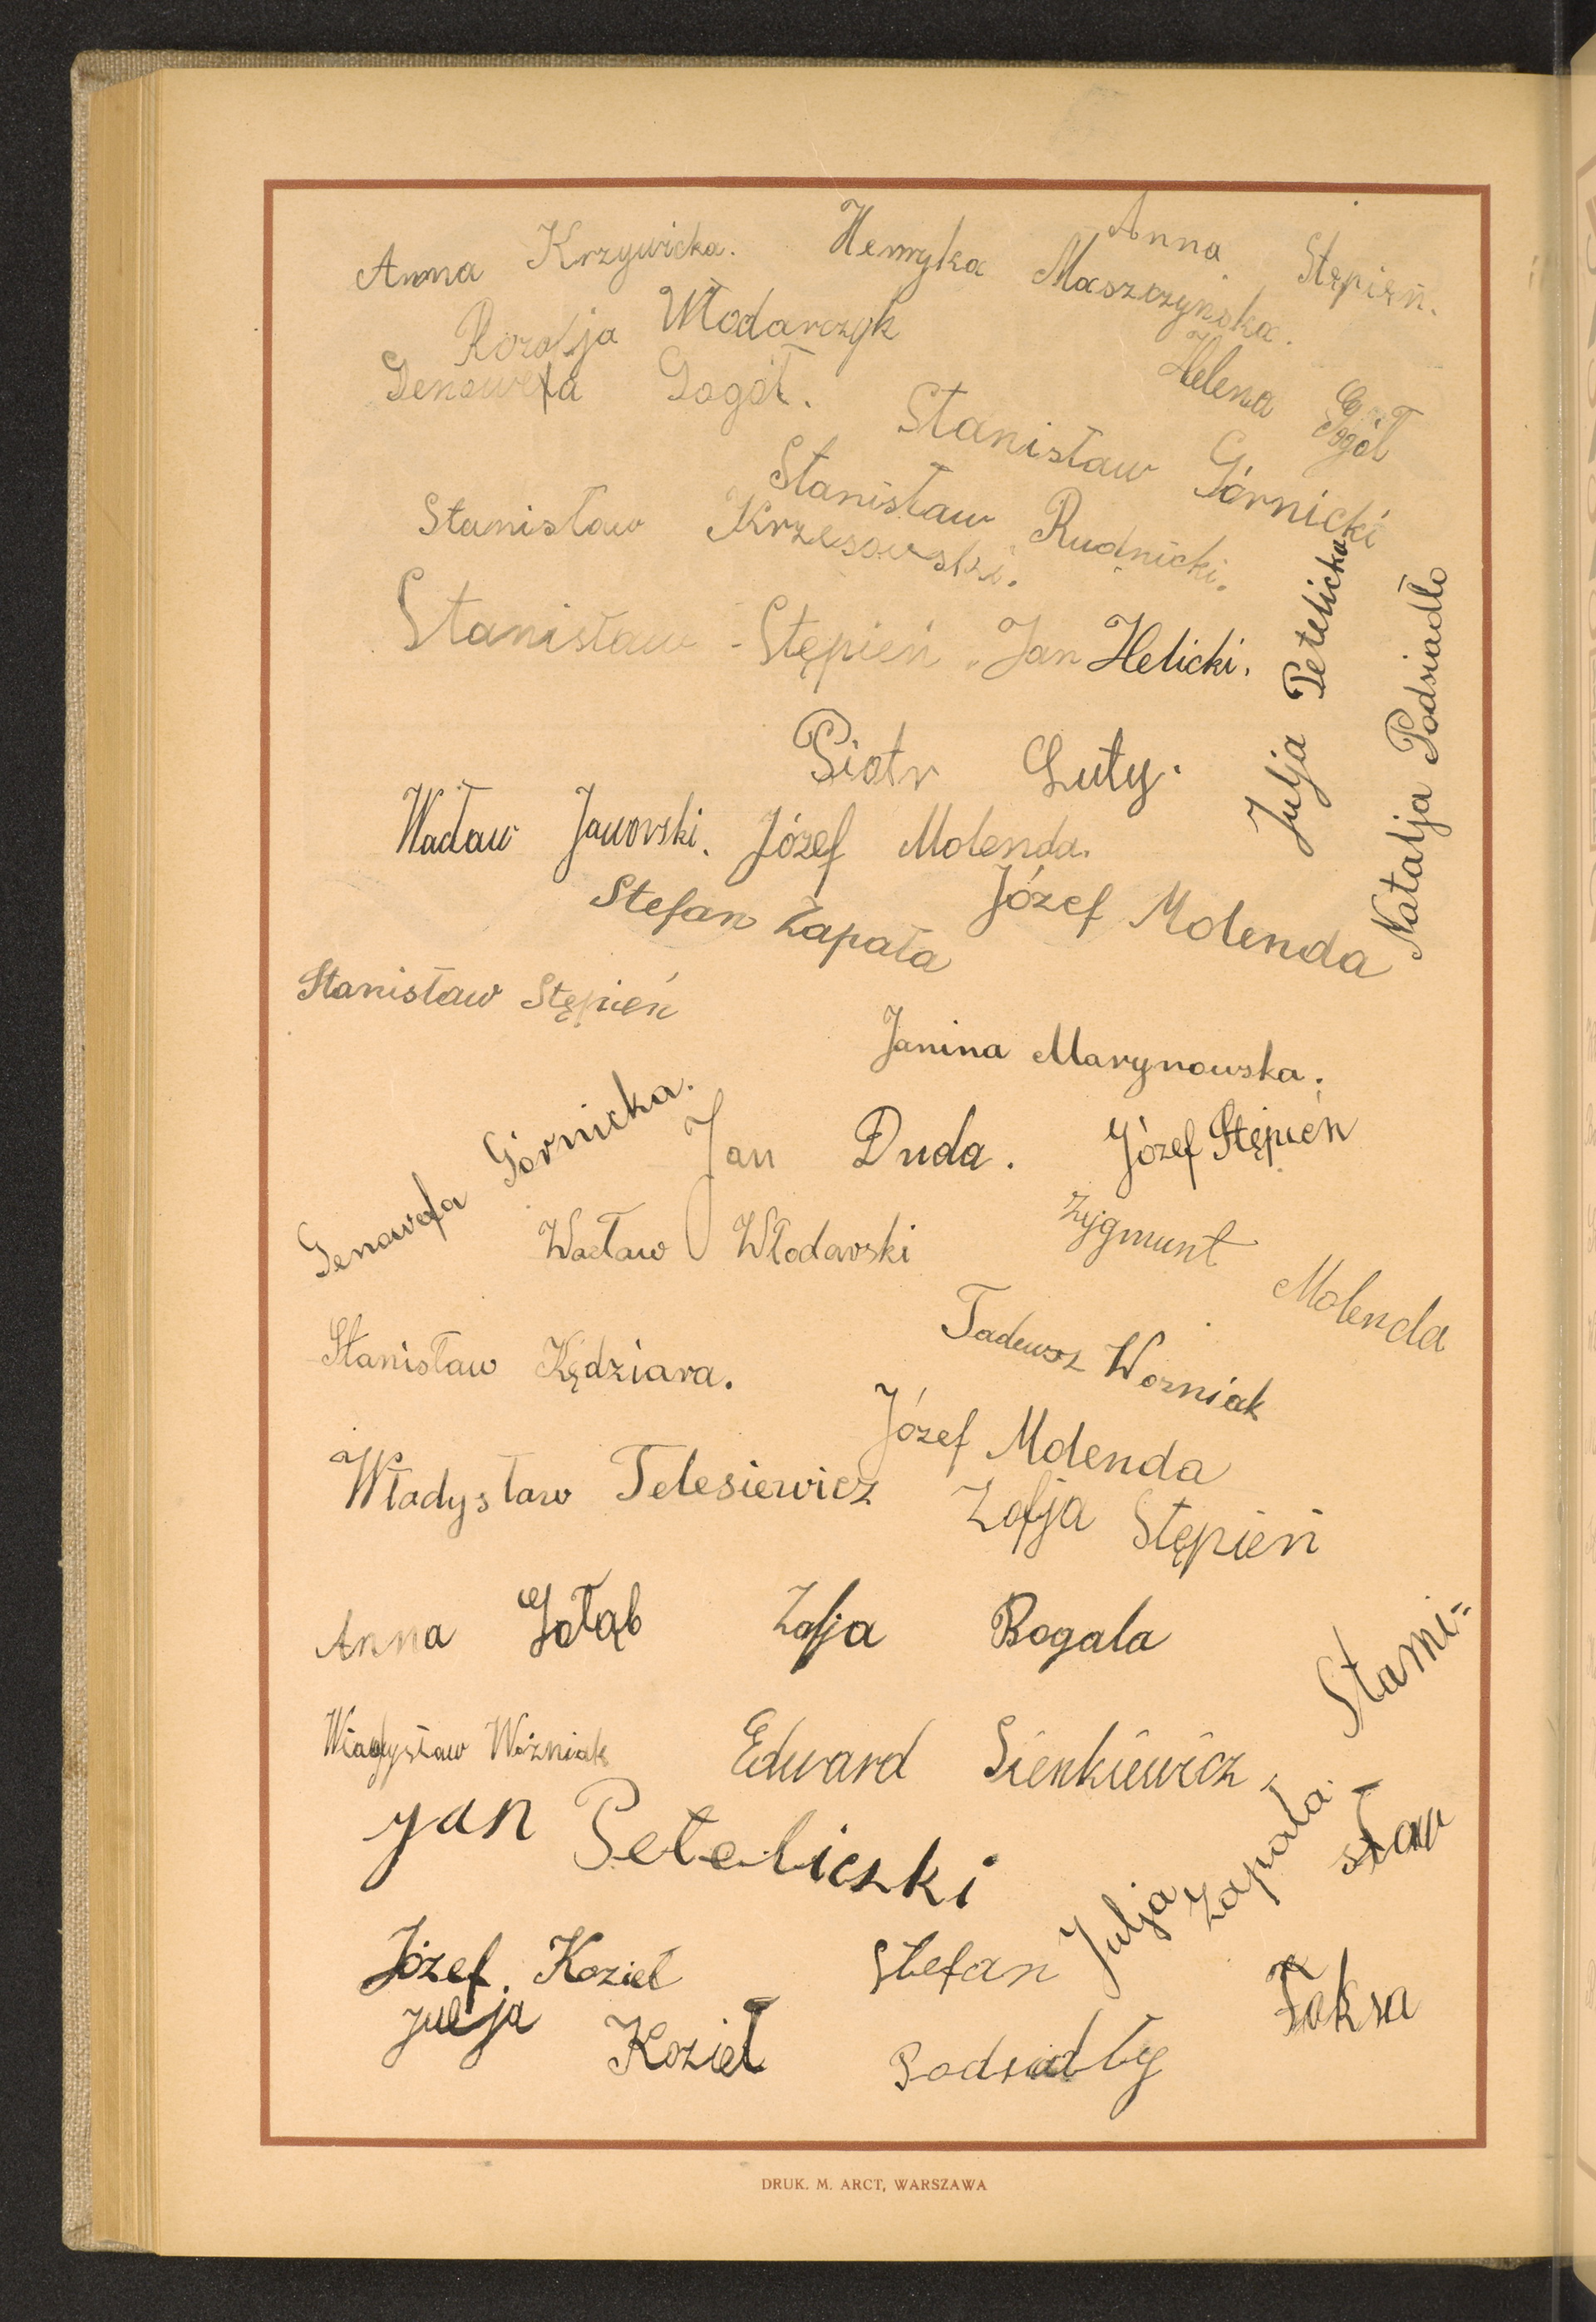 Anna Krzywicka.
Henryka Maszczyńska.
Anna Stępień.
Rozalja Włodarczyk
Genowefa Gogół.
Helena Gogół
Stanisław Górnicki
Stanisław Rudnicki.
Stanisław Krzesowski.
Stanisław Stępień
Jan Helicki.
Julja Petelicka
Natalja Podsiadło
Piotr Luty.
Wacław Jaworski.
Józef Molenda.
Józef Molenda
Stefan Zapała
Stanisław Stępień
Janina Marynowska.
Genowefa Górnicka.
Jan Duda.
Józef Stępień
Wacław Włodarski
Zygmunt Molenda
Stanisław Kędziara.
Tadeusz Wozniak
Józef Molenda
Władysław Telesiewicz
Zofja Stępień
Anna Gołąb
Zofja Bogala
Władysław Woźniak
Edward Sienkiewicz,
Stani=
sław
Faksa
Jan Peteliczki
Julja Zapała.
Józef. Kozieł
Julja Kozieł
Stefan
Podsiadły
DRUK. M. ARCT, WARSZAWA